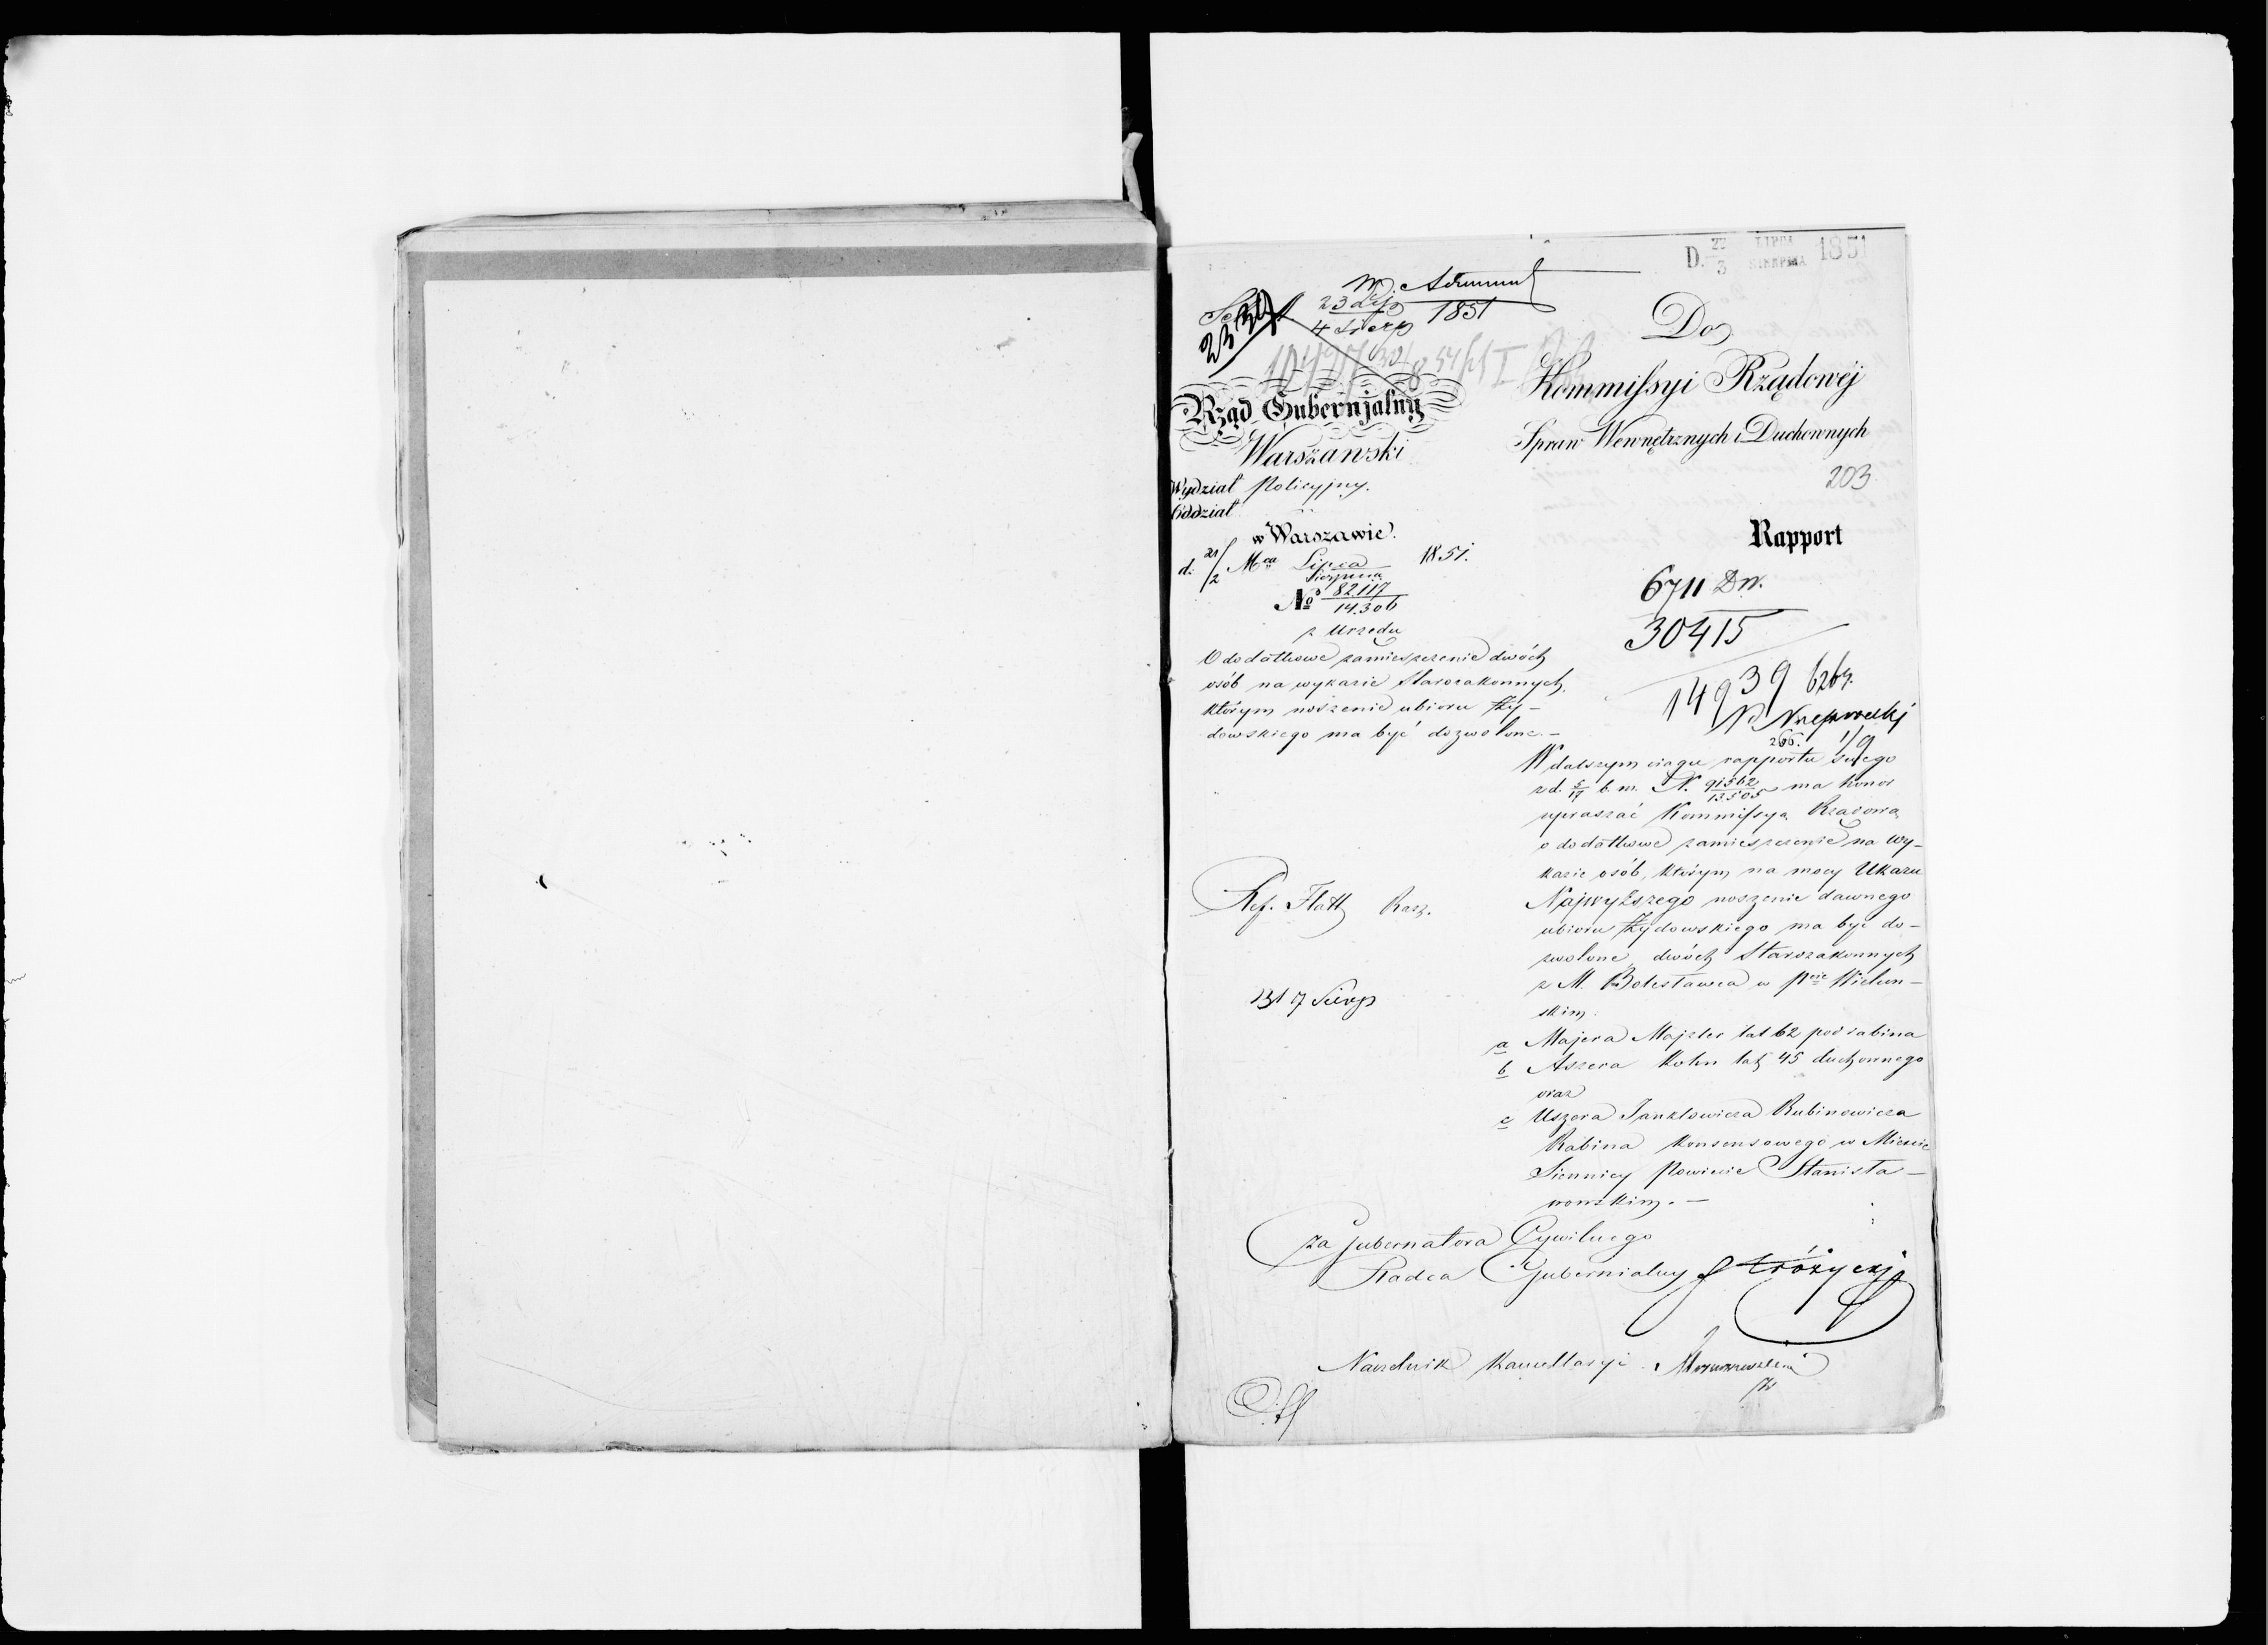 D. 22/3 LIPCA SIERPNIA 1851
23 Lip
4 Sierp 1851
Rząd Gubernjalny
Warszawski
Wydział Policyjny.
Oddział
w Warszawie.
d. 21/2 Mca Lipca Sierpnia 1851.
No 82117/14.306
z Urzędu
O dodatkowe zamieszczenie dwóch
osób na wykazie Starozakonnych,
którym noszenie ubioru Ży-
dowskiego ma być dozwolone.-
Ref. Flatt
Do
Kommissyi Rządowéj
Spraw Wewnętrznych i Duchownych
203
Rapport
6711 Dw.
30415
14939
266.
W dalszym ciągu rapportu swego
z d. 5/17 b. m. N. 91562/13505 ma honor
upraszać Kommissyą Rządową
o dodatkowe zamieszczenie na wy-
kazie osób, którym na mocy Ukazu
Najwyższego noszenie dawnego
ubioru Żydowskiego ma być do-
zwolone, dwóch Starozakonnych
z M. Bolesławca w Pcie Wieluń-
skim.
a Majera Majzler lat 62 podrabina
b Aszera Kohn lat 45 duchownego
oraz
c Uszera Janklowicza Rubinowicza
Rabina konsensowego w Mieście
Siennicy Powiecie Stanisła-
wowskim.-
Za Gubernatora Cywilnego
Radca Gubernialny
Naczelnik Kancellaryi